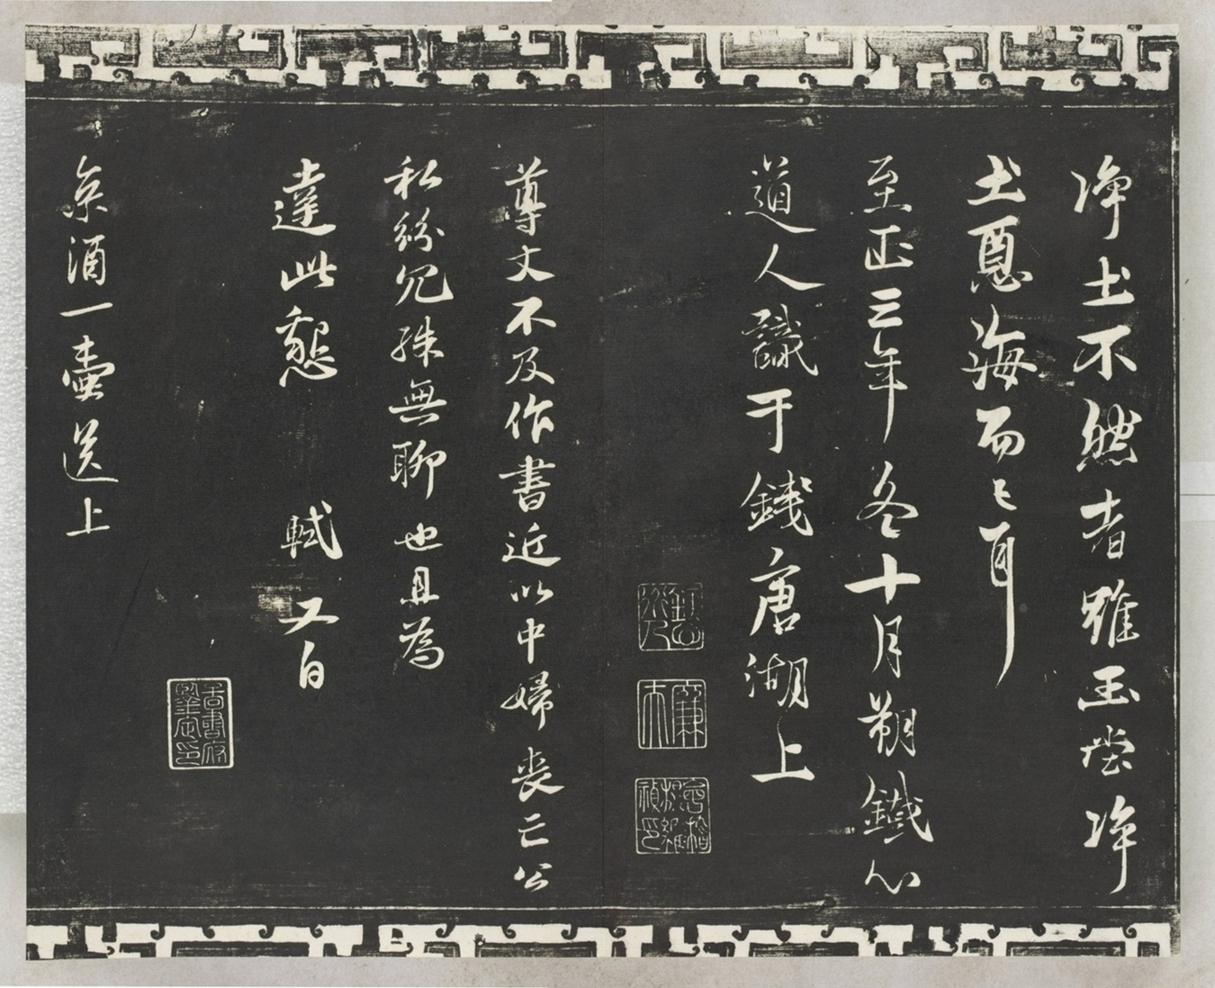 净土不然者雖玉堂净
土惡海而已耳
至正三年冬十月朔鐵心
道人識于錢唐湖上
廉夫
會稽楊維禎印
尊丈不及作書近以中婦喪亡公
私紛冗殊無聊也且為
達此懇 軾又白
京酒一壺送上